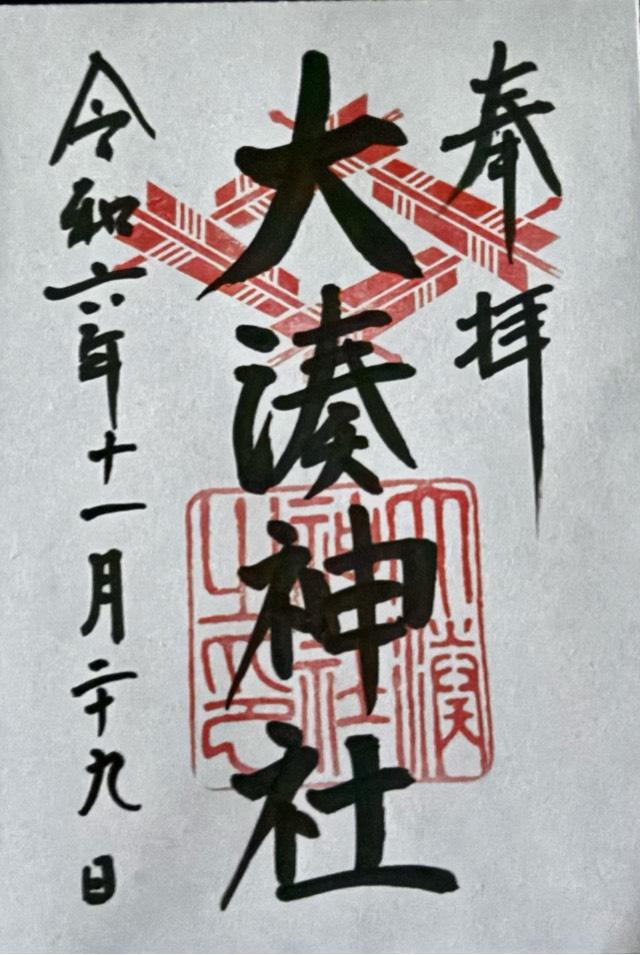 奉拝
大湊神社
令和六年十一月二十九日
大湊
神社
之印